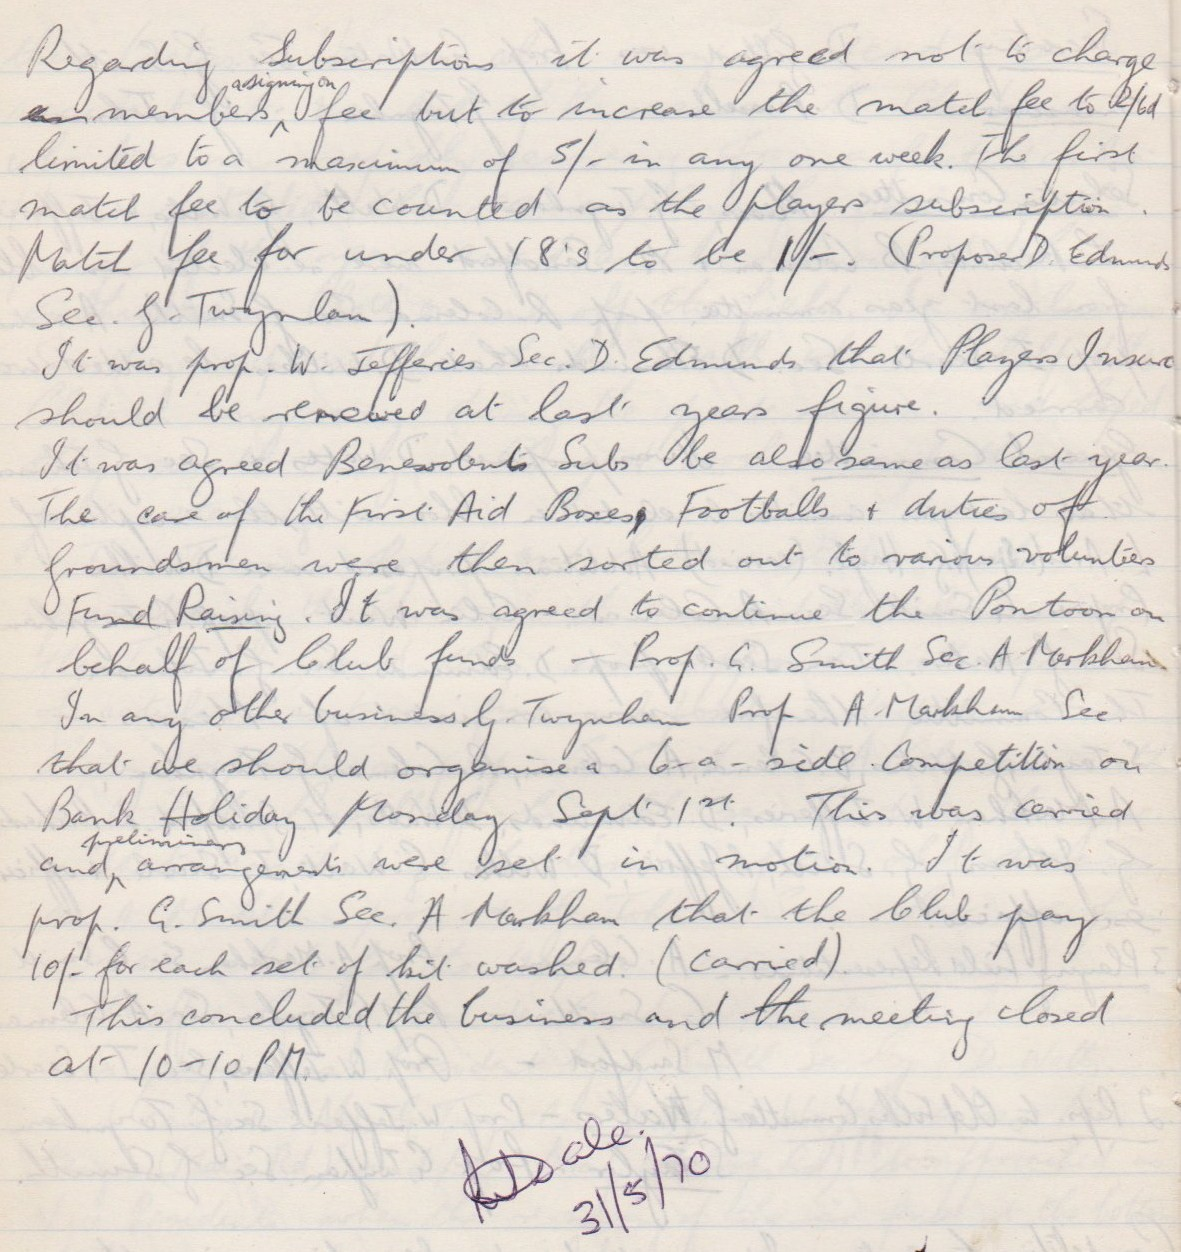 Regarding Subscriptions it was agreed not to charge
members a signing on fee but to increase the match fee to 2/6d
limited to a maximum of 5/- in any one week. The first
match fee to be counted as the players subscription.
Match fee for under 18's to be 1/-. (Proposer D. Edmunds
Sec. G. Twynham).
It was prop. W. Jefferies Sec. D. Edmunds that Players Insure
should be renewed at last years figure.
It was agreed Benevolent Subs be also same as last year.
The care of the First Aid Boxes, Footballs + duties of
groundsmen were then sorted out to various volunteers
Fund Raising. It was agreed to continue the Pontoon on
behalf of Club funds - Prop. G. Smith Sec. A Markham
In any other business G. Twynham Prop A. Markham Sec
that we should organise a 6-a-side Competition on
Bank Holiday Monday Sept 1st. This was carried
and preliminary arrangements were set in motion. It was
prop. G. Smith Sec. A Markham that the Club pay
10/- for each set of kit washed. (Carried).
This concluded the business and the meeting closed
at 10-10 PM.
31/5/70